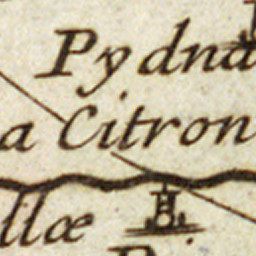 Pydna
a Citron
llæ